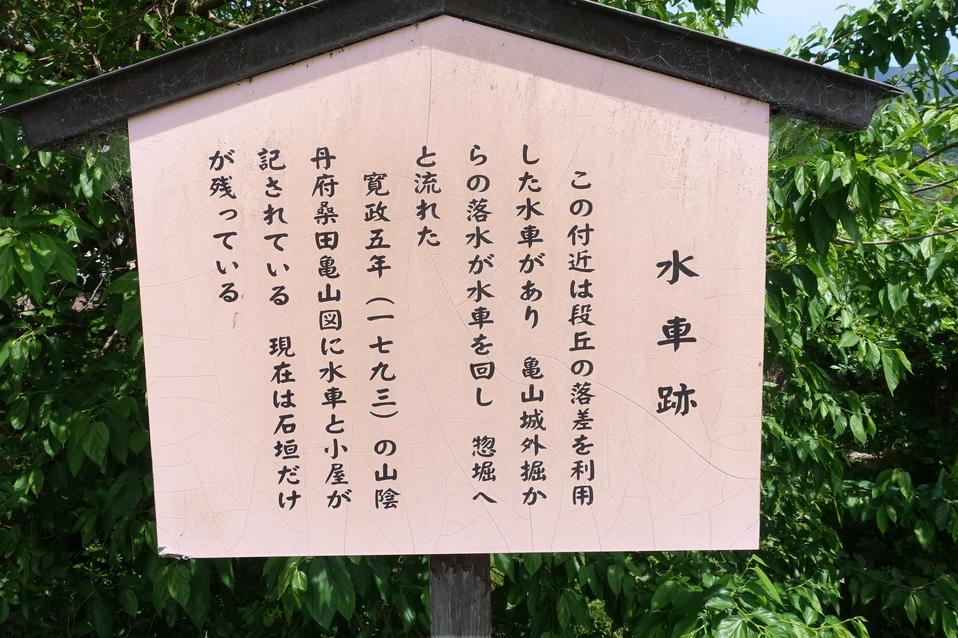 水車跡
この付近は段丘の落差を利用
した水車があり　亀山城外掘か
らの落水が水車を回し　惣堀へ
と流れた
寛政五年（一七九三）の山陰
丹府桑田亀山図に水車と小屋が
記されている　現在は石垣だけ
が残っている